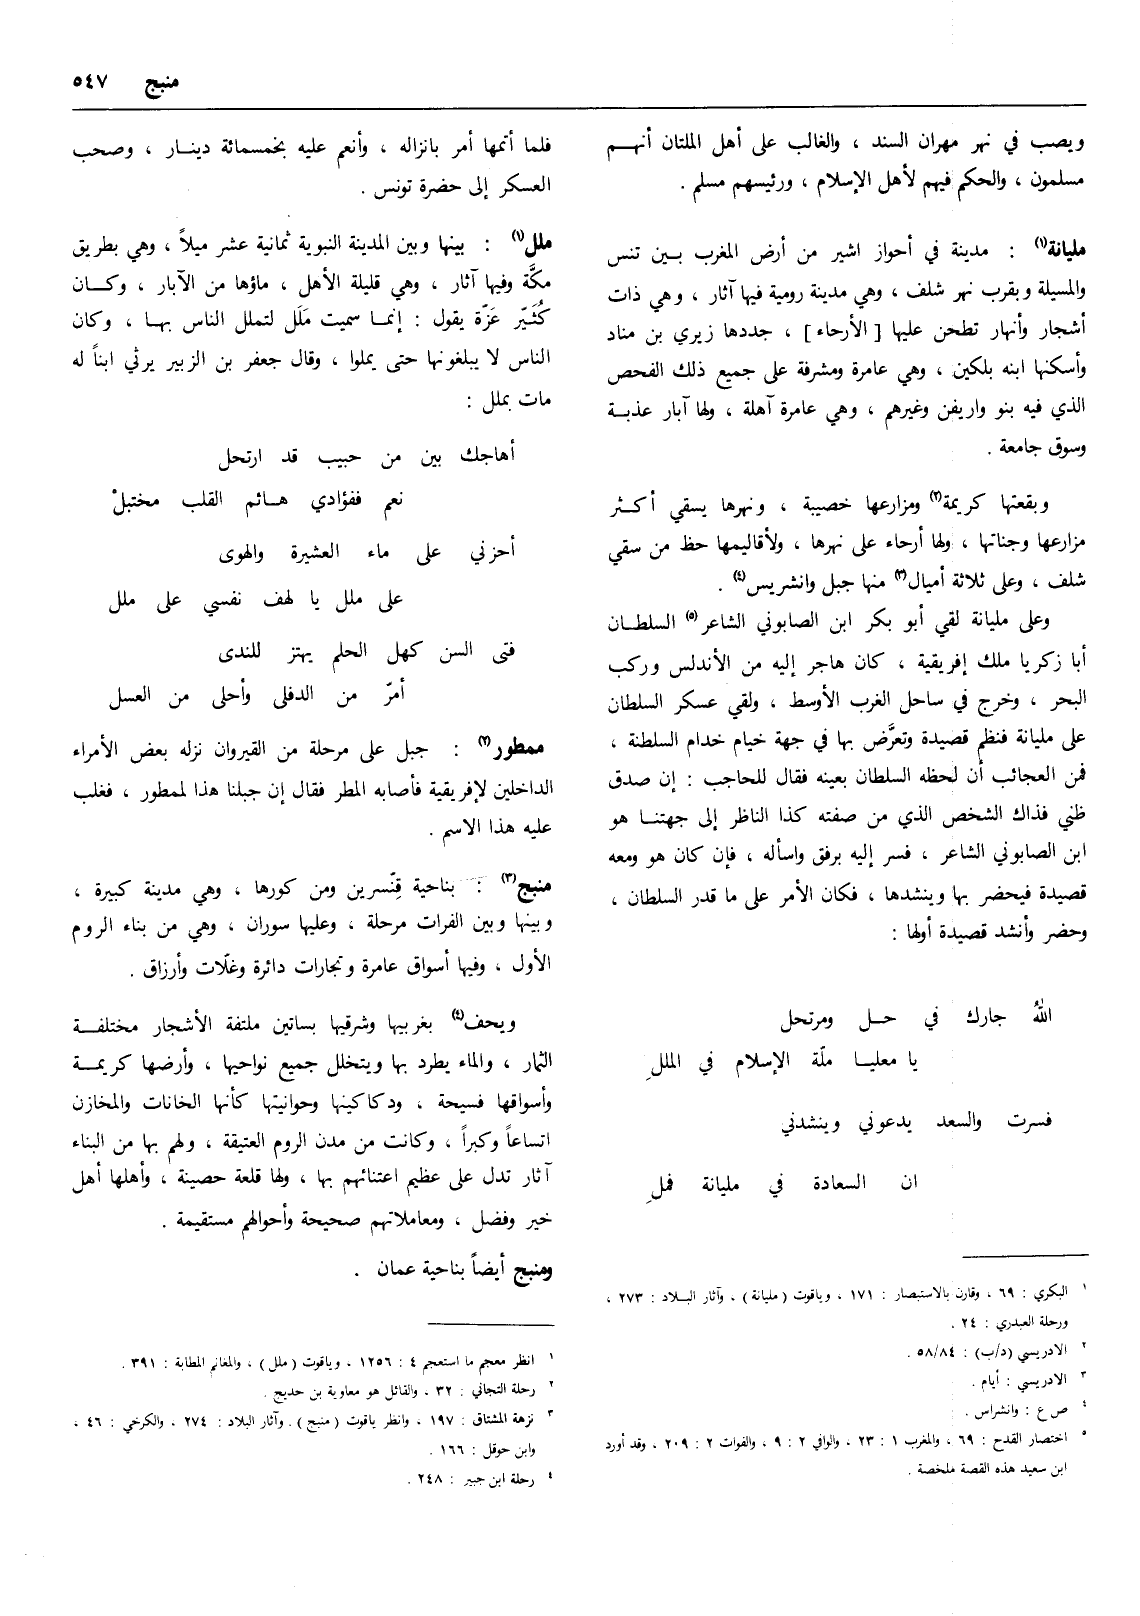 منبج ٥٤٧
ويصب في نهر مهران السند ، والغالب على أهل الملتان أنهم
مسلمون ، والحكم فيهم لأهل الإسلام ، ورئيسهم مسلم .
مليانة(١) : مدينة في أحواز اشير من أرض المغرب بين تنس
والمسيلة وبقرب نهر شلف ، وهي مدينة رومية فيها آثار ، وهي ذات
أشجار وأنهار تطحن عليها [ الأرحاء ] ، جددها زيري بن مناد
وأسكنها ابنه بلكين ، وهي عامرة ومشرفة على جميع ذلك الفحص
الذي فيه بنو واريفن وغيرهم ، وهي عامرة آهلة ، ولها آبار عذبة
وسوق جامعة .
وبقعتها كريمة(٢) ومزارعها خصيبة ، ونهرها يسقي أكثر
مزارعها وجناتها ، ولها أرحاء على نهرها ، ولأقاليمها حظ من سقي
شلف ، وعلى ثلاثة أميال(٣) منها جبل وانشريس(٤) .
وعلى مليانة لقي أبو بكر ابن الصابوني الشاعر(٥) السلطان
أبا زكريا ملك إفريقية ، كان هاجر إليه من الأندلس وركب
البحر ، وخرج في ساحل الغرب الأوسط ، ولقي عسكر السلطان
على مليانة فنظم قصيدة وتعرَّض بها في جهة خيام خدام السلطنة ،
فمن العجائب أن لحظه السلطان بعينه فقال للحاجب : إن صدق
ظني فذاك الشخص الذي من صفته كذا الناظر إلى جهتنا هو
ابن الصابوني الشاعر ، فسر إليه برفق واسأله ، فإن كان هو ومعه
قصيدة فيحضر بها وينشدها ، فكان الأمر على ما قدر السلطان ،
وحضر وأنشد قصيدة أولها :
اللهُ جارك في حل ومرتحل
يا معليا ملّة الإسلام في المللِ
فسرت والسعد يدعوني وينشدني
ان السعادة في مليانة فملِ
١ البكري : ٦٩ ، وقارن بالاستبصار : ١٧١ ، وياقوت ( مليانة ) ، وآثار البلاد : ٢٧٣ ،
ورحلة العبدري : ٢٤ .
٢ الادريسي (د/ب) : ٥٨/٨٤ .
٣ الادريسي : أيام .
٤ ص ع : وانشراس .
٥ اختصار القدح : ٦٩ ، والمغرب ١ : ٢٣ ، والوافي ٢ : ٩ ، والفوات ٢ : ٢٠٩ ، وقد أورد
ابن سعيد هذه القصة ملخصة .
فلما أتمها أمر بانزاله ، وأنعم عليه بخمسمائة دينار ، وصحب
العسكر إلى حضرة تونس .
ملل(١) : بينها وبين المدينة النبوية ثمانية عشر ميلاً ، وهي بطريق
مكَّة وفيها آثار ، وهي قليلة الأهل ، ماؤها من الآبار ، وكان
كُثَيِّر عَزّة يقول : إنما سميت مَلَل لتملل الناس بها ، وكان
الناس لا يبلغونها حتى يملوا ، وقال جعفر بن الزبير يرثي ابناً له
مات بملل :
أهاجك بين من حبيب قد ارتحل
نعم ففؤادي هائم القلب مختبلْ
أحزني على ماء العشيرة والهوى
على ملل يا لهف نفسي على ملل
فتى السن كهل الحلم يهتز للندى
أمرّ من الدفلى وأحلى من العسل
ممطور(٢) : جبل على مرحلة من القيروان نزله بعض الأمراء
الداخلين لإفريقية فأصابه المطر فقال إن جبلنا هذا لممطور ، فغلب
عليه هذا الاسم .
منبج(٣) : بناحية قِنّسرين ومن كورها ، وهي مدينة كبيرة ،
وبينها وبين الفرات مرحلة ، وعليها سوران ، وهي من بناء الروم
الأول ، وفيها أسواق عامرة وتجارات دائرة وغلّات وأرزاق .
ويحف(٤) بغربيها وشرقيها بساتين ملتفة الأشجار مختلفة
الثمار ، والماء يطرد بها ويتخلل جميع نواحيها ، وأرضها كريمة
وأسواقها فسيحة ، ودكاكينها وحوانيتها كأنها الخانات والمخازن
اتساعاً وكبراً ، وكانت من مدن الروم العتيقة ، ولهم بها من البناء
آثار تدل على عظيم اعتنائهم بها ، ولها قلعة حصينة ، وأهلها أهل
خير وفضل ، ومعاملاتهم صحيحة وأحوالهم مستقيمة .
ومنبج أيضاً بناحية عمان .
١ انظر معجم ما استعجم ٤ : ١٢٥٦ ، وياقوت ( ملل ) ، والمغانم المطابة : ٣٩١ .
٢ رحلة التجاني : ٣٢ ، والقائل هو معاوية بن حديج .
٣ نزهة المشتاق : ١٩٧ ، وانظر ياقوت ( منبج ) . وآثار البلاد : ٢٧٤ ، والكرخي : ٤٦ ،
وابن حوقل : ١٦٦ .
٤ رحلة ابن جبير : ٢٤٨ .